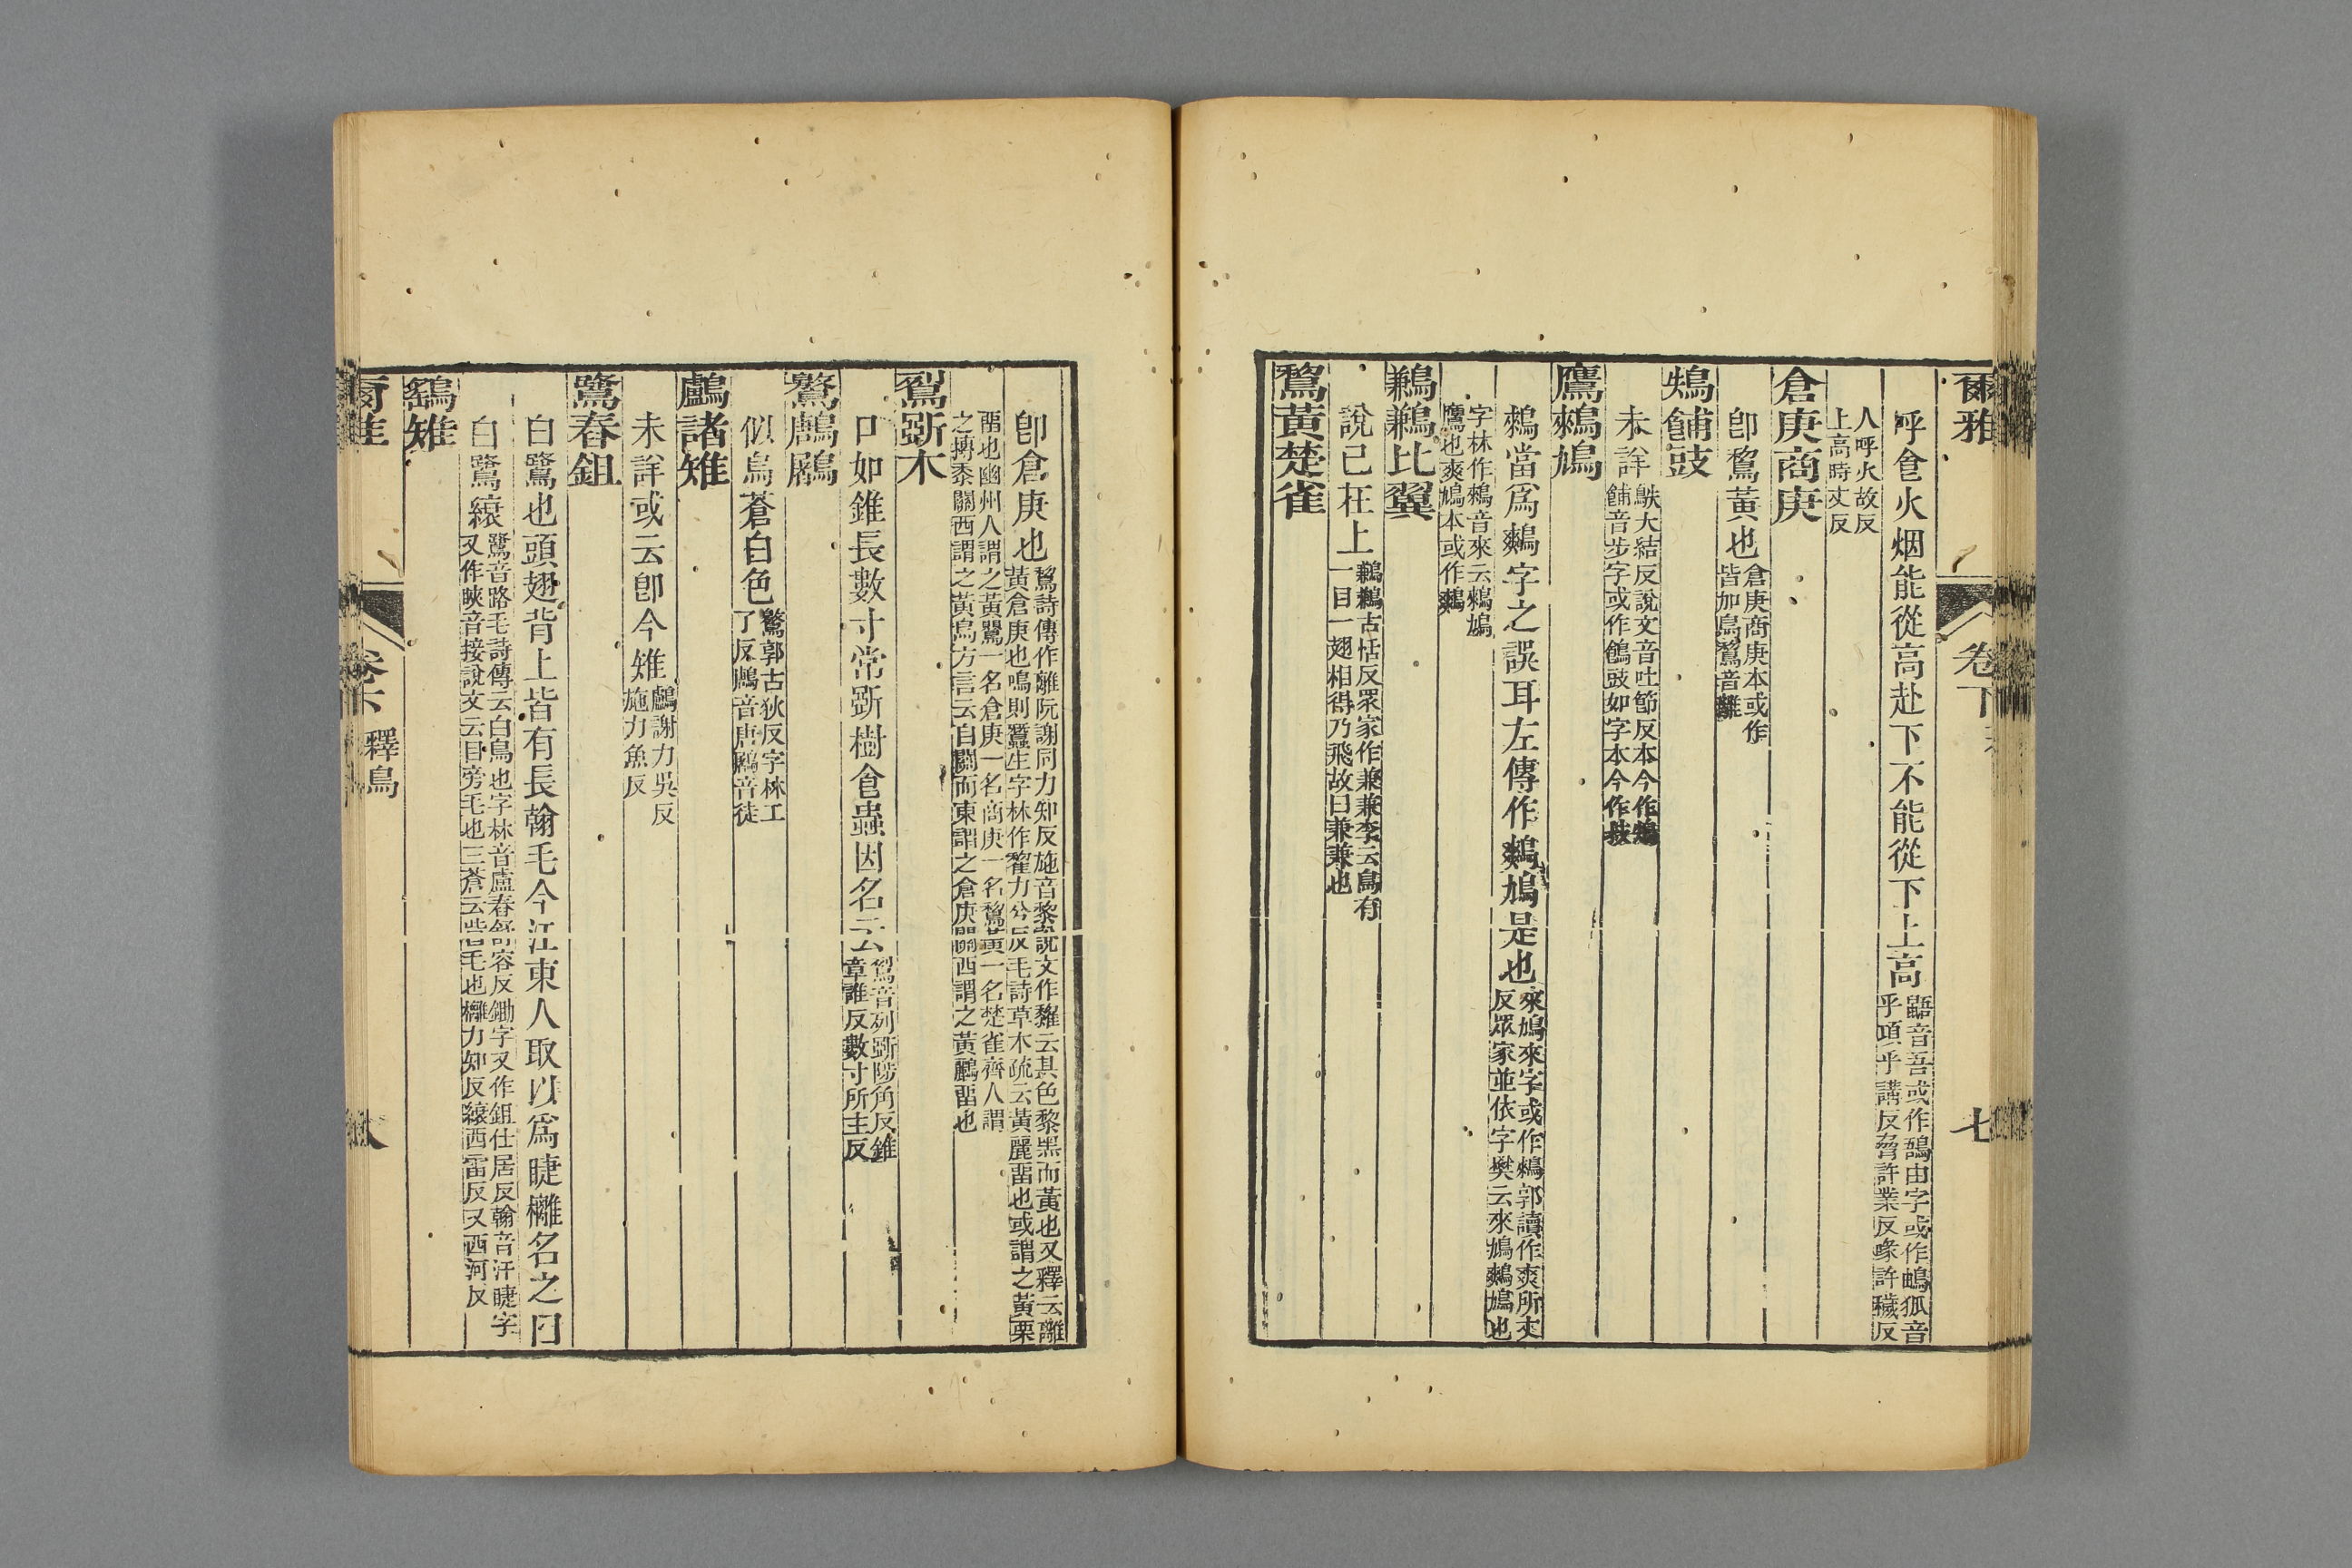 爾雅 卷下 七
呼食火烟能從高赴下不能從下上高
鼯音吾或作䳎由字或作鶹狐音
乎項乎講反脅許業反喙許穢反
人呼火故反
上高時丈反
倉庚商庚
卽鵹黃也
倉庚商庚本或作
皆加鳥鵹音離
鴩餔豉
未詳
鴩大結反說文音吐節反本今作鴩
餔音步字或作鵏豉如字本今作敊
鷹鶆鳩
鶆當爲鷞字之誤耳左傳作鷞鳩是也
來鳩來字或作鶆郭讀作爽所丈
反眾家並依字樊云來鳩鷞鳩也
字林作鶆音來云鶆鳩
鷹也爽鳩本或作鷞
鶼鶼比翼
說已在上
鶼鶼古恬反眾家作兼兼李云鳥有
一目一翅相得乃飛故曰兼兼也
鵹黃楚雀
卽倉庚也
鵹詩傳作離阮謝同力知反施音黎說文作雞云其色黎黑而黃也又釋云離
黃倉庚也鳴則蠶生字林作鵹力兮反毛詩草木疏云黃麗畱也或謂之黃栗
畱也幽州人謂之黃鸎一名倉庚一名商庚一名鵹黃一名楚雀齊人謂
之摶黍關西謂之黃鳥方言云自關而東謂之倉庚關西謂之黃鸝畱也
鴷斲木
口如錐長數寸常斲樹食蟲因名云
鴷音列斲陟角反錐
章誰反數寸所主反
鷔鶶鷵
似烏蒼白色
鷔郭古狄反字林工
了反鶶音唐鷵音徒
鸕諸雉
未詳或云卽今雉
鸕謝力吳反
施力魚反
鷺舂鉏
白鷺也頭翅背上皆有長翰毛今江東人取以爲睫攡名之曰
白鷺縗
鷺音路毛詩傳云白鳥也字林音盧舂舒容反鋤字又作鉏仕居反翰音汗睫字
又作䀹音接說文云目旁毛也三蒼云眥毛也攡力知反縗西雷反又西河反
鷂雉
爾雅 卷下 釋鳥 八